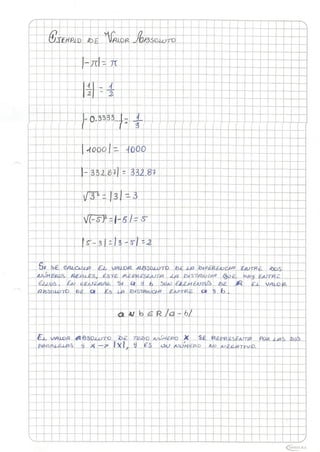 Ejemplo de Valor Absoluto
|-π| = π
|1/2| = 1/2
|-0.3333...| = 1/3
|1000| = 1000
|-332.87| = 332.87
√3² = |3| = 3
√(-5)² = |-5| = 5
|5-3| = |3-5| = 2
Si se calcula el valor absoluto de la diferencia entre dos
números reales, este representa la distancia que hay entre
ellos. En general si a y b son elementos de R el valor
absoluto de a es la distancia entre a y b.
a b ∈ R |a-b|
El valor absoluto de todo número x se representa por las dos
paralelas y x → |x|, y es un número no negativo.